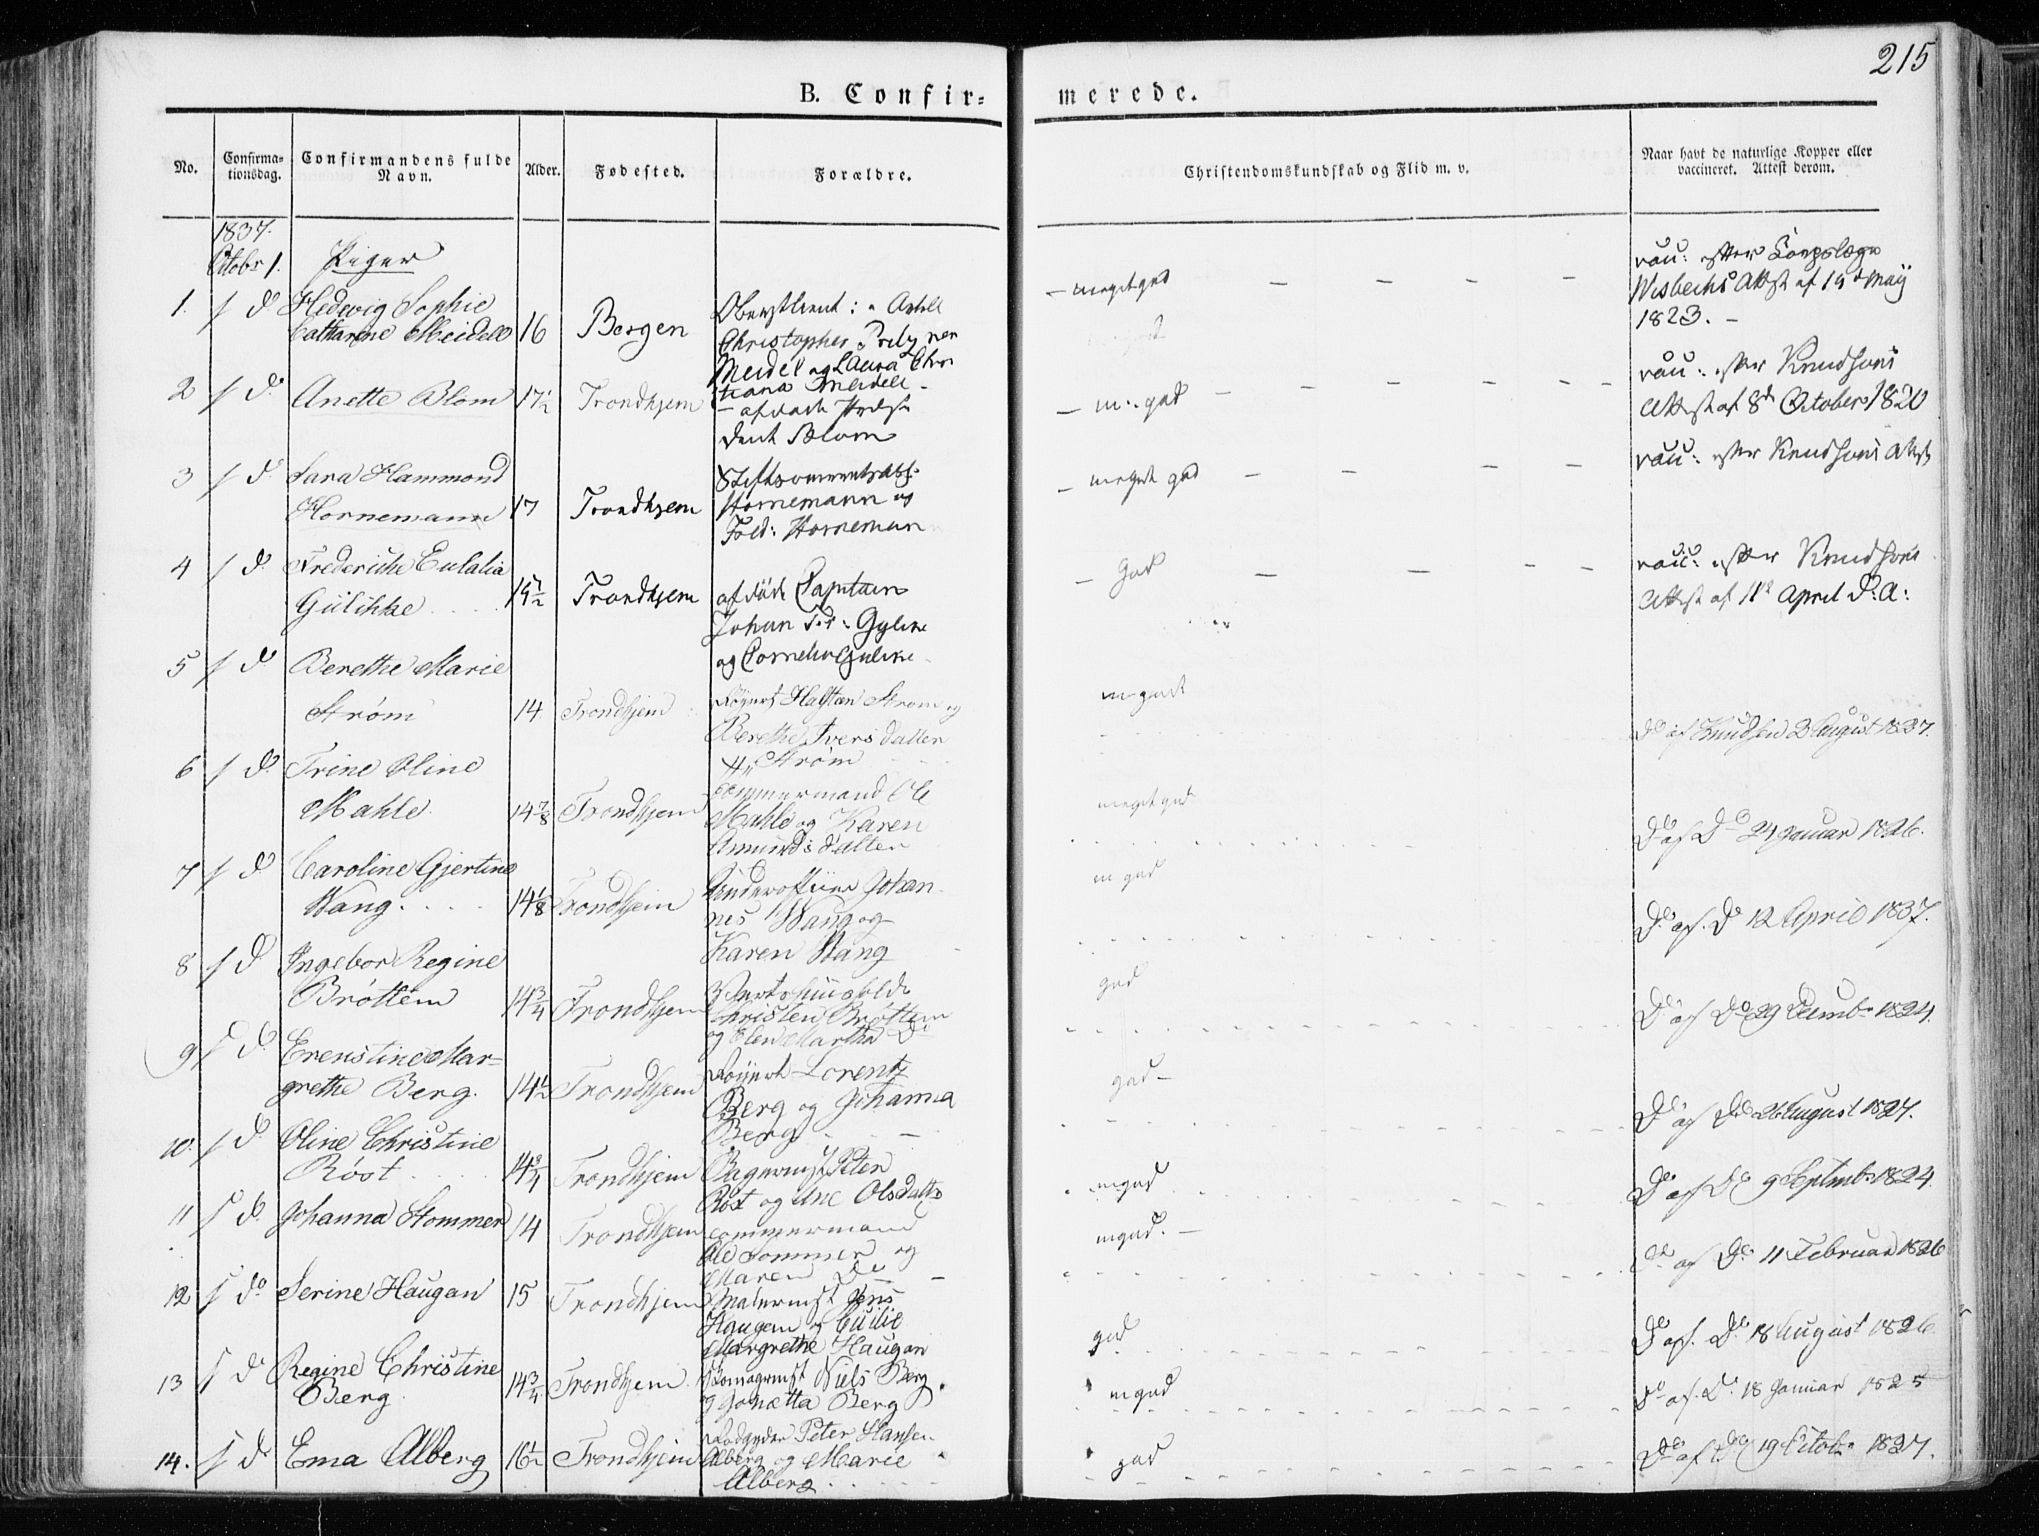 215
B. Confir= merede.
No. Confirma= tionsdag. Confirmandens fulde Navn. Alder. Fødested. Forældre. Christendomskundskab og Flid m. v. Naar havt de naturlige Kopper eller vaccineret. Attest derom.
1837.
Octobr 1. Piger
1. / d Hedevig Sophie Catharine Meidell 16 Bergen Christopher Meidel og Laura meget god vacc: efter Attest af 19 May 1823. –
2 / d. Anette Blom 17½ Trondhjem – afdøde Præsident Blom – m. god vacc: efter Knudsons Attest af 8de October 1820
3 / d. Sara Hammond Hornemann 17 Trondhjem Hornemann og Hornemann – meget god vacc: efter Knudsons Attest
4 / d. Frederiche Eulalia Gülikke 15½ Trondhjem afdøde Capitain Johan og – God vacc: efter Knudsons Attest af 11te April d. A:
5 / d Berethe Marie Strøm 14 Trondhjem Halstæn Strøm og Berethe Iversdatter Strøm m god do af Knudsen 2 August 1837.
6 / d. Trine Oline Mahle. 14⅞ Trondhjem Tømmermand Ole Mahle og Karen Amundsdatter meget god Do af Do 24 Januar 1826.
7 / d Caroline Gjertine Wang. 14⅛ Trondhjem Underofficer Johannes Wang og Karen Wang m god Do af. Do 12 April 1837.
8 / d Ingebor Regine Brøttem 14¾ Trondhjem Christen Brøttem og Elen Martha Do god Do af Do 29 Decembr 1824.
9 / d. Erenstine Margrethe Berg. 14½ Trondhjem Lorentz Berg og Johanna Berg god – Do af Do 26 August 1827.
10. / d. Oline Christine Røst 14¾ Trondhjem Bagermst Peter Røst og Ane Olsdatter mgod Do af Do 9 Septmbr 1824.
11 / d. Johanna Sommer 14 Trondhjem Tommermand Ole Sommer og Maren Do mgod. – Do af Do 11 Februar 1826
12 / do Serine Haugan 15 Trondhjem Malermst Jens Haugan og Cicilie Margrethe Haugan god Do af. Do 18 August 1826.
13 / d Regine Christine Berg. 14¾ Trondhjem. Skomagermst Niels Berg og Jonetta Berg mgod Do af. Do 18 Januar 1825
14. / d Ema Alberg 16½ Trondhjem Peter Hansen Alberg og Marie Alberg god Do af Do 19 Octobr 1827.